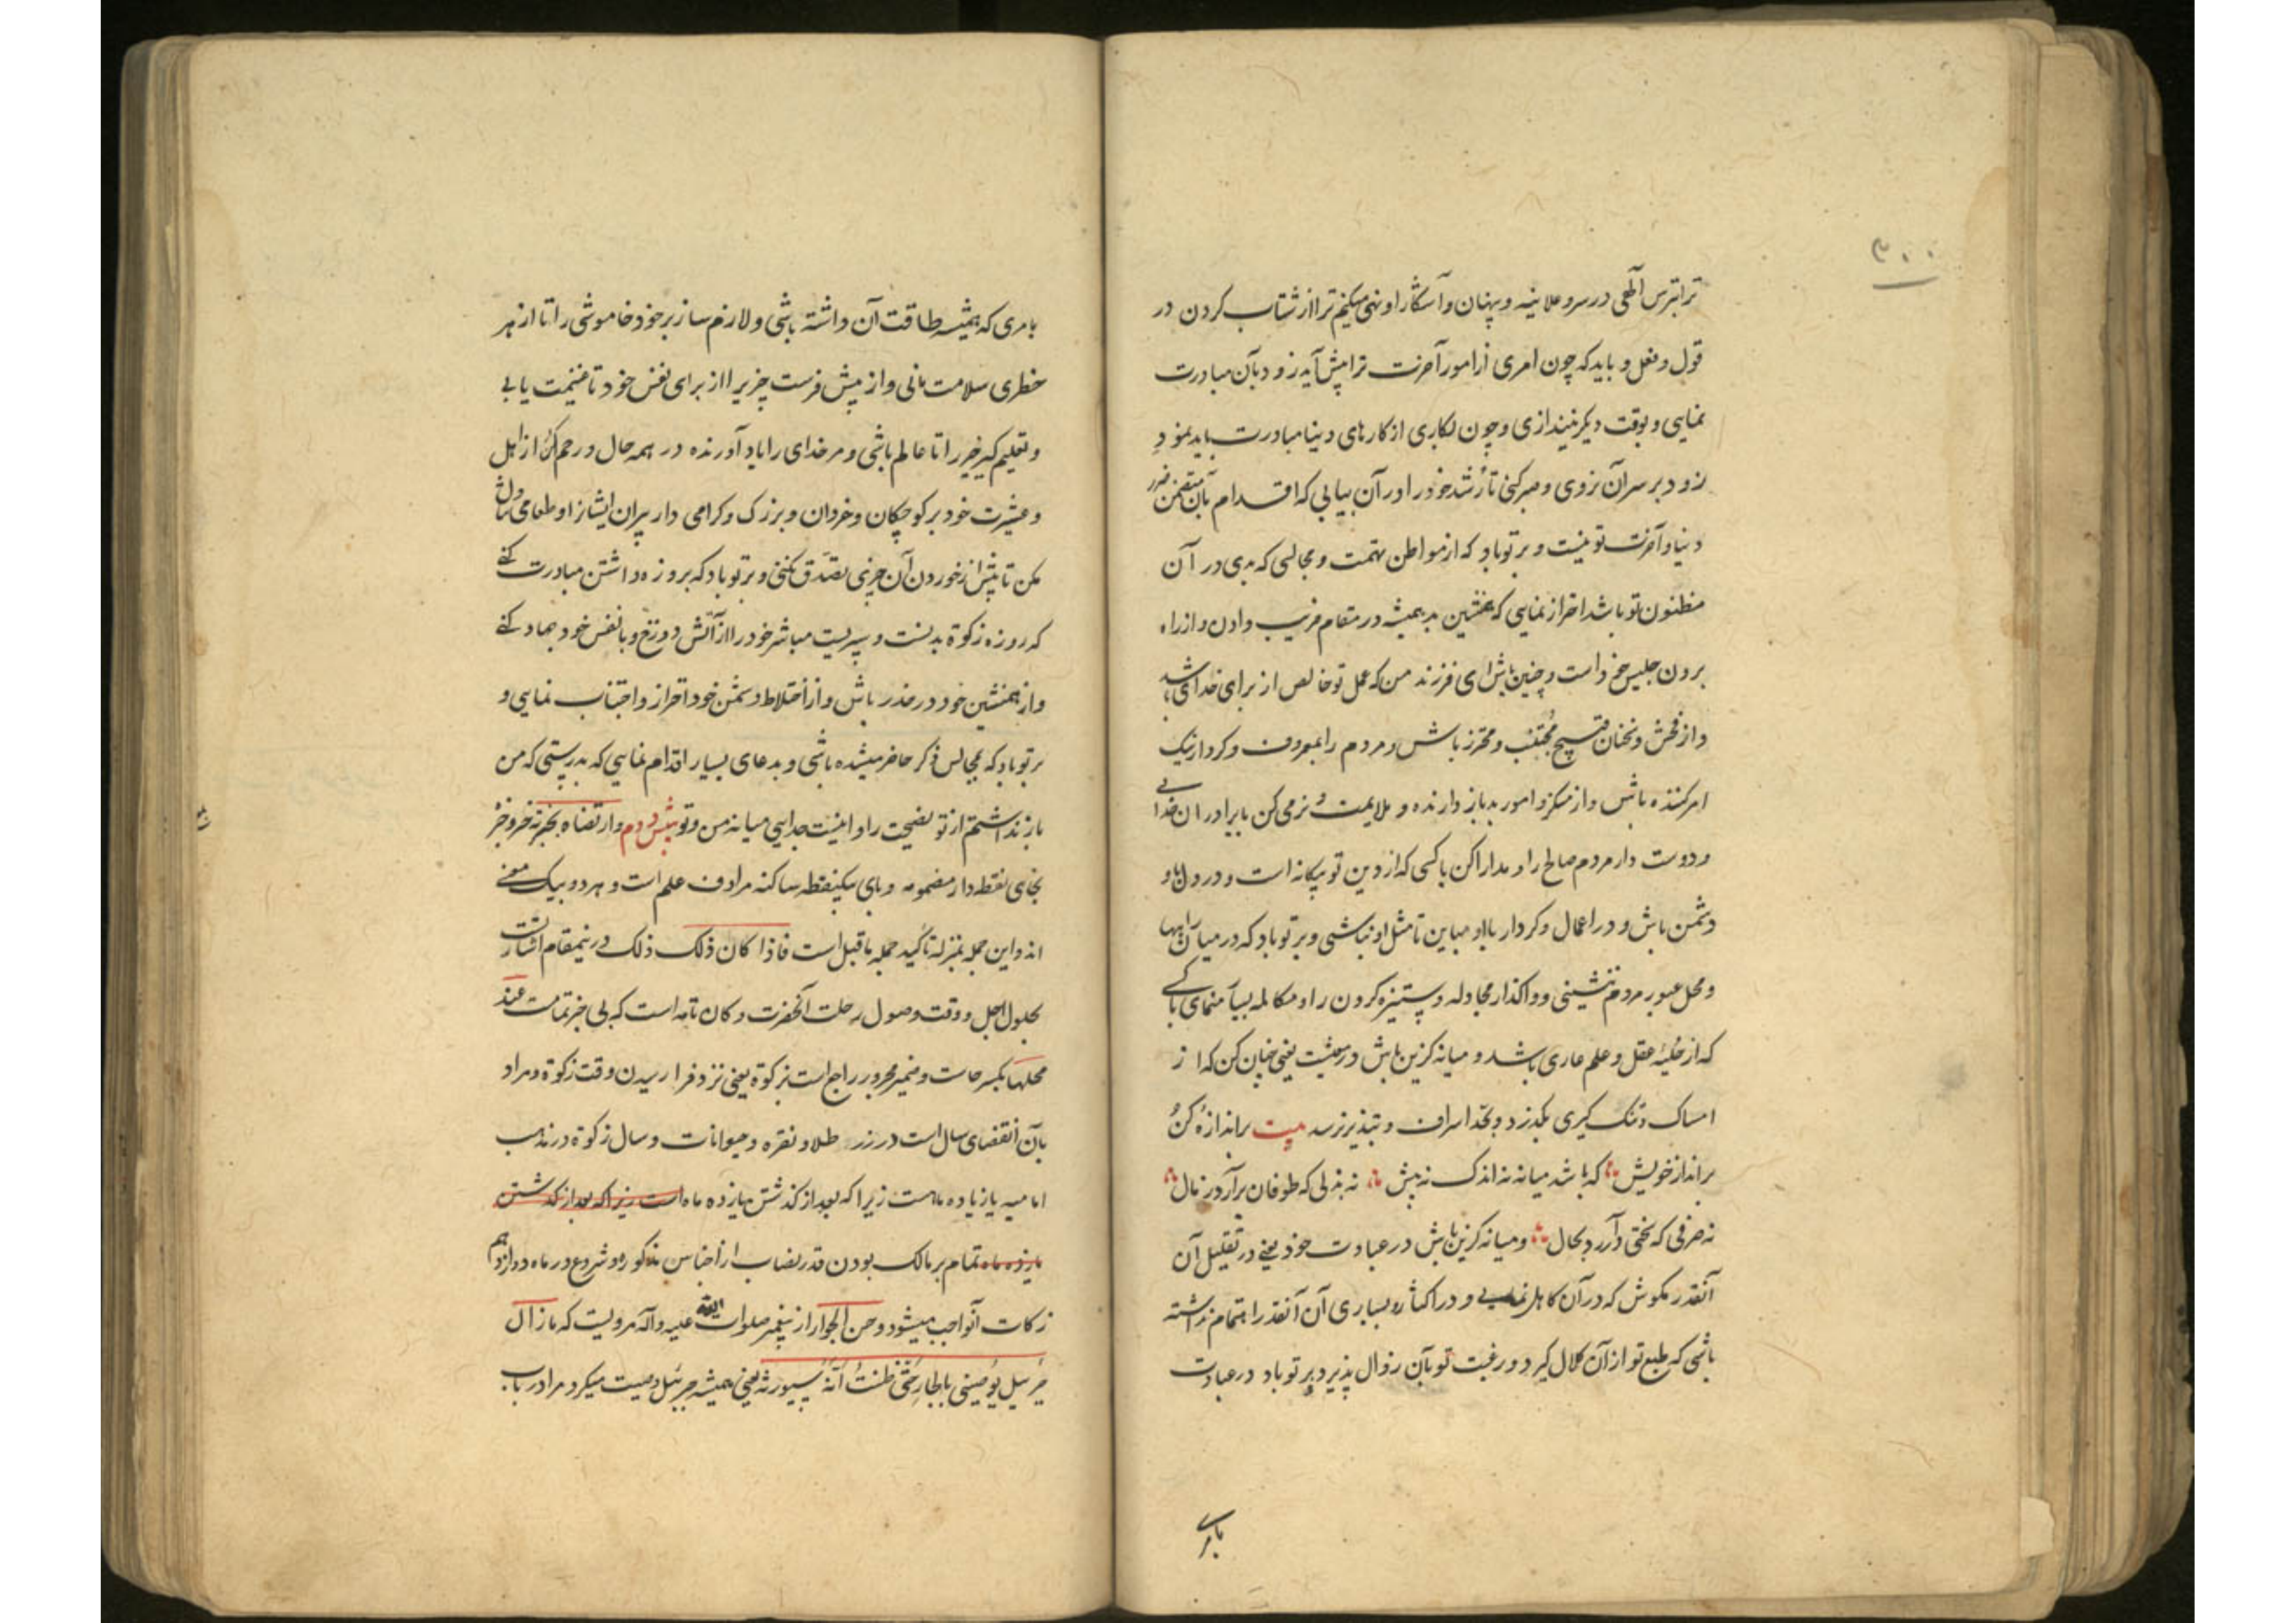 ۳۰۰
ترا بترس الهی در سر و علانیه و پنهان و آشکارا و نهی میکنم ترا از شتاب کردن در
قول و فعل و باید که چون امری از امور آخرت ترا پیش آید زود بآن مبادرت
نمایی و بوقت دیگر نیندازی و چون بکاری از کارهای دنیا مبادرت باید نمود
زود بر سر آن نروی و صبر کنی تا رشد خود را در آن بیابی که اقدام بآن متضمن ضرر
دنیا و آخرت تو نیست و بر تو باد که از مواطن تهمت و مجالسی که بدی در آن
مظنون تو باشد احتراز نمایی که همنشین بد همیشه در مقام فریب دادن و از راه
بردن جلیس خود است و چنین باش ای فرزند من که عمل تو خالص از برای خدای باشد
و از فحش و سخنان قبیح مجتنب و محترز باش و مردم را بمعروف و کردار نیک
امر کننده باش و از منکر و امور بد باز دارنده و ملایمت و نرمی کن با برادران خدایی
و دوست دار مردم صالح را و مدارا کن با کسی که از دین تو بیکانه است و در دل با او
دشمن باش و در اعمال و کردار با او مباین تا مثل او نباشی و بر تو باد که در میان راهها
و محل عبور مردم ننشینی و واگذار مجادله و ستیزه کردن را و مکالمه بسیار منمای با کسی
که از حلیه عقل و علم عاری باشد و میانه گزین باش در معیشت یعنی چنان کن که از
امساک و تنک گیری بگذرد و بحد اسراف و تبذیر نرسد بیت بر اندازه کن
بر انداز خویش که باشد میانه نه اندک نه بیش نه بذلی که طوفان برآرد ز مال
نه صرفی که سختی درآرد بحال و میانه گزین باش در عبادت خود یعنی در تقلیل آن
آنقدر مکوش که در آن کاهل نمایی و در اکثار و بسیاری آن آنقدر اهتمام نداشته
باشی که طبع تو از آن کلال گیرد و رغبت تو بآن زوال پذیرد و بر تو باد در عبادت
بامری
بامری که همیشه طاقت آن داشته باشی و لازم ساز بر خود خاموشی را تا از هر
خطری سلامت مانی و از پیش فرست چیزی را از برای نفس خود تا غنیمت یابی
و تعلیم گیر خیر را تا عالم باشی و مر خدای را یاد آورنده در همه حال و رحم کن از اهل
و عشیرت خود بر کوچکان و خردان و بزرک و کرامی دار پیران ایشان را و طعامی تناول
مکن تا پیش از خوردن آن چیزی تصدق نکنی و بر تو باد که بروزه داشتن مبادرت کنی
که روزه زکوة بدنست و سپریست مباشر خود را از آتش دوزخ و با نفس خود جهاد کنی
و از همنشین خود در حذر باش و از اختلاط دشمن خود احتراز و اجتناب نمایی و
بر تو باد که بمجالس ذکر حاضر میشده باشی و بدعای بسیار اقدام نمایی که بدرستی که من
باز نداشتم از تو نصیحت را و اینست جدایی میانه من و تو بیش دوم وارتضاه بخبرته خبر و خبر
بخای نقطه دار مضمومه و بای یکنقطه ساکنه مرادف علم است و هر دو بیک معنی
اند و این جمله بمنزله تاکید جمله ماقبل است فاذا کان ذلک ذلک در ینمقام اشارتست
بحلول اجل و وقت وصول رحلت آنحضرت و کان تامه است که بی خبر تمامست عند
محلها بکسر حاست و ضمیر مجرور راجع است بزکوة یعنی نزد فرا رسیدن وقت زکوة و مراد
بآن انقضای سال است در زر طلا و نقره و حیوانات و سال زکوة در مذهب
امامیه یازده ماهست زیرا که بعد از گذشتن یازده ماه است زیرا که بعد از گذشتن
یازده ماه تمام بر مالک بودن قدر نصاب از اجناس مذکوره و شروع در ماه دوازدهم
زکات آنواجب میشود و حسن الجوار از پیغمبر صلوات الله علیه و آله مرویست که مازال
جبرئیل یوصینی بالجار حتی ظننت انه سیورثه یعنی همیشه جبرئیل وصیت میکرد مرا در باب